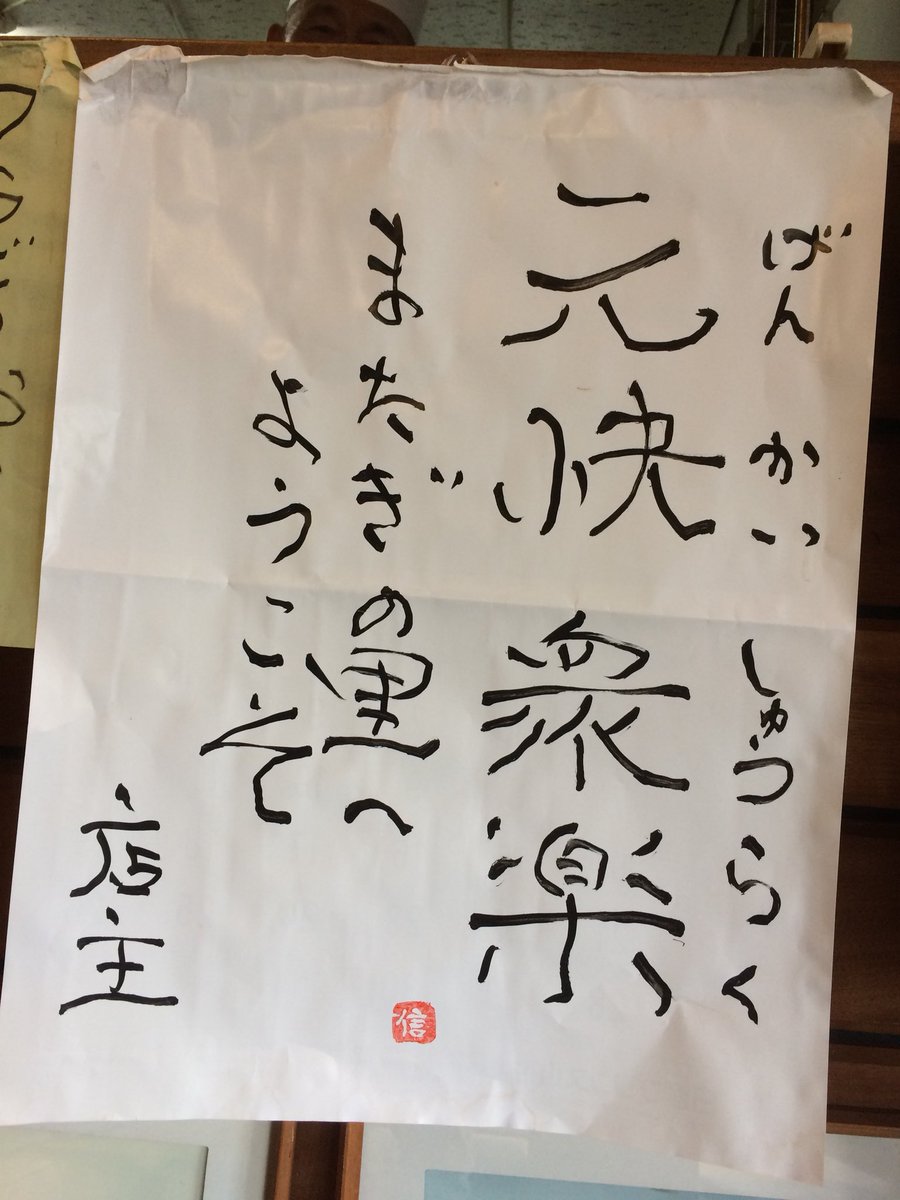 げん かい しゅうらく
元快衆楽
またぎの里へ
ようこそ
店主
信